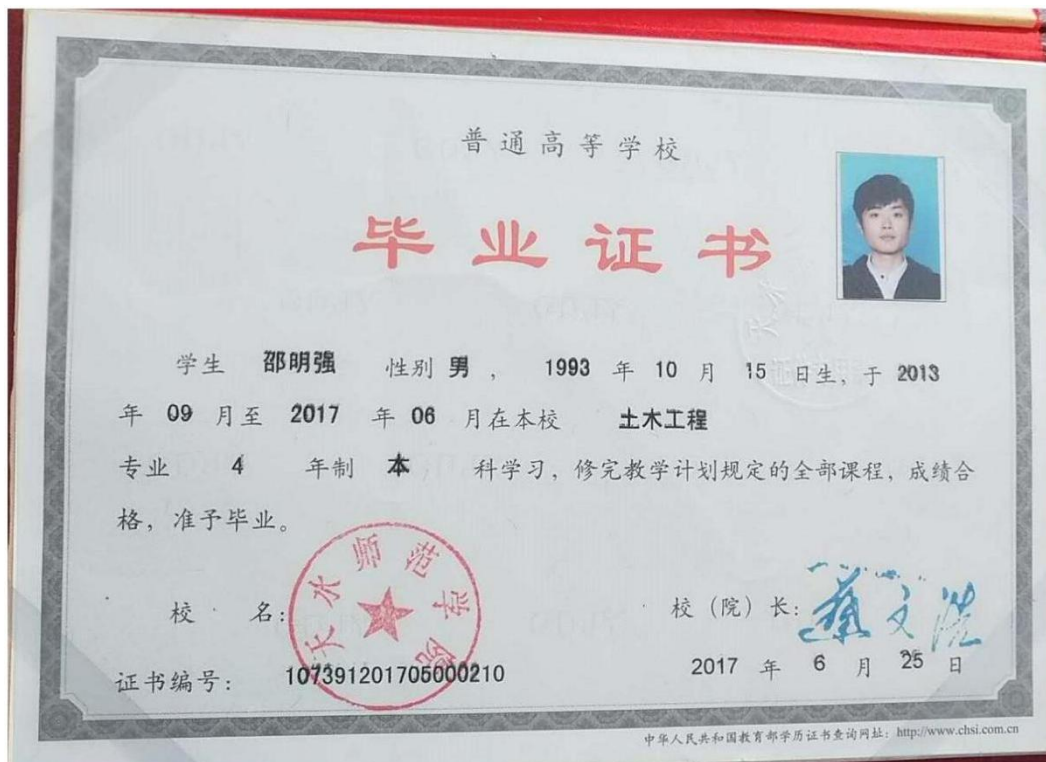 普通高等学校
毕业证书
学生 邵明强 性别 男 , 1993 年 10 月 15 日生, 于 2013
年 09 月至 2017 年 06 月在本校 土木工程
专业 4 年制 本 科学习, 修完教学计划规定的全部课程, 成绩合
格, 准予毕业。
校 名: 天水师范学院
校 (院) 长: 蔡文浩
证书编号: 107391201705000210
2017 年 6 月 25 日
中华人民共和国教育部学历证书查询网址: http://www.chsi.com.cn